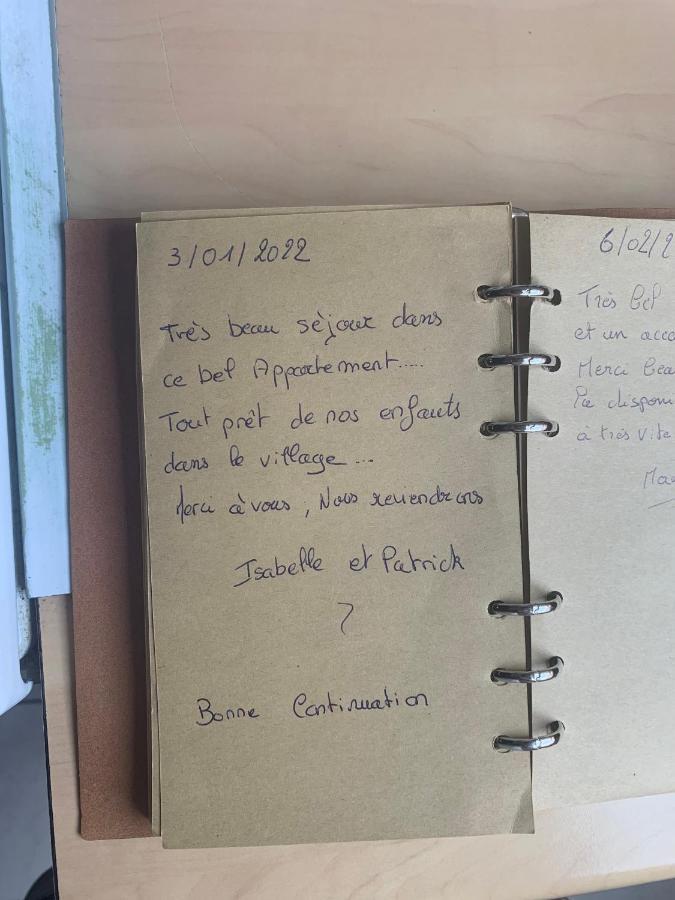 3/01/2022
Très beau séjour dans
ce bel Appartement.....
Tout prêt de nos enfants
dans le village ...
Merci à vous, Nous reviendrons
Isabelle et Patrick
Bonne Continuation
6/02/2
Très bel
et un acco
Merci bea
la disponi
à très vite
Ma